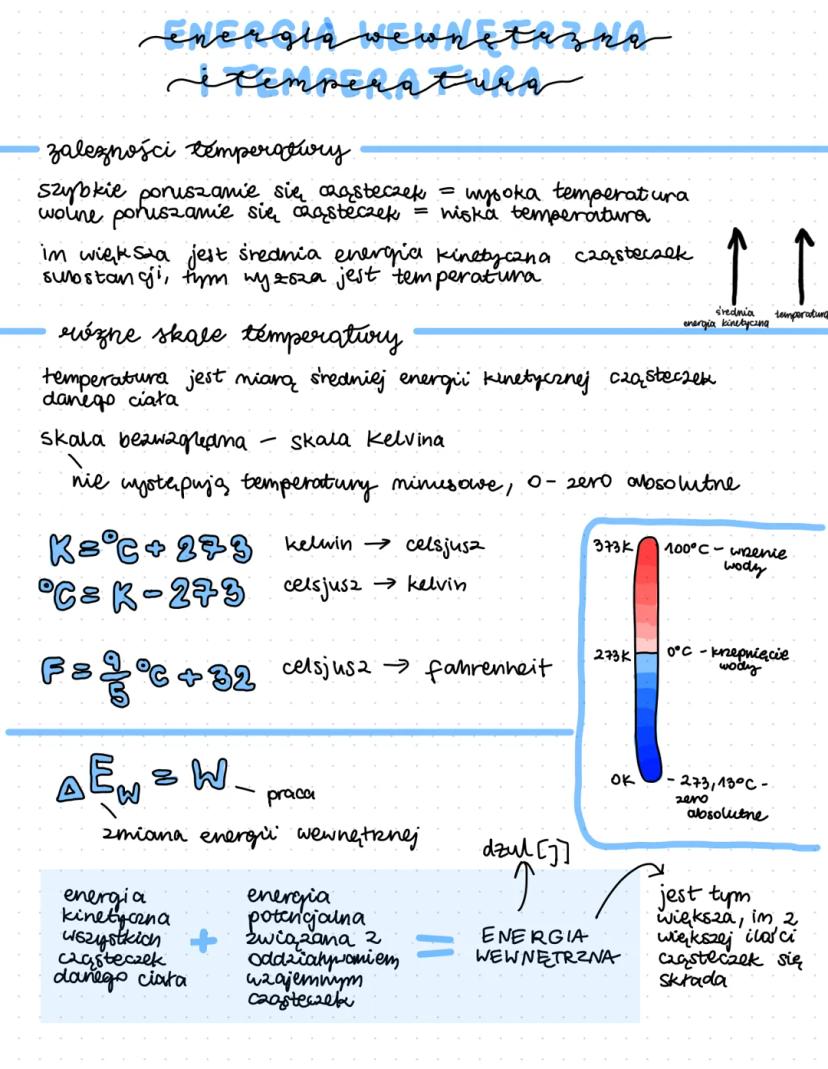 ENERGIA WEWNĘTRZNA
energia wewnętrzna
I TEMPERATURA
i temperatura
zależności temperatury
szybkie poruszanie się cząsteczek = wysoka temperatura
wolne poruszanie się cząsteczek = niska temperatura
im większa jest średnia energia kinetyczna cząsteczek
substancji, tym wyższa jest temperatura
średnia
energia kinetyczna
temperatura
różne skale temperatury
temperatura jest miarą średniej energii kinetycznej cząsteczek
danego ciała
skala bezwzględna – skala Kelvina
nie występują temperatury minusowe, 0 - zero absolutne
K = °C + 273 kelwin → celsjusz
°C = K - 273 celsjusz → kelvin
F = 9/5 °C + 32 celsjusz → fahrenheit
373K 100°C - wrzenie
wody
273K 0°C - krzepnięcie
wody
0K - 273,15°C -
zero
absolutne
ΔEw = W
praca
zmiana energii wewnętrznej
dżul [J]
energia
kinetyczna
wszystkich
cząsteczek
danego ciała
+
energia
potencjalna
związana z
oddziaływaniem
wzajemnym
cząsteczek
=
ENERGIA
WEWNĘTRZNA
jest tym
większa, im z
większej ilości
cząsteczek się
składa